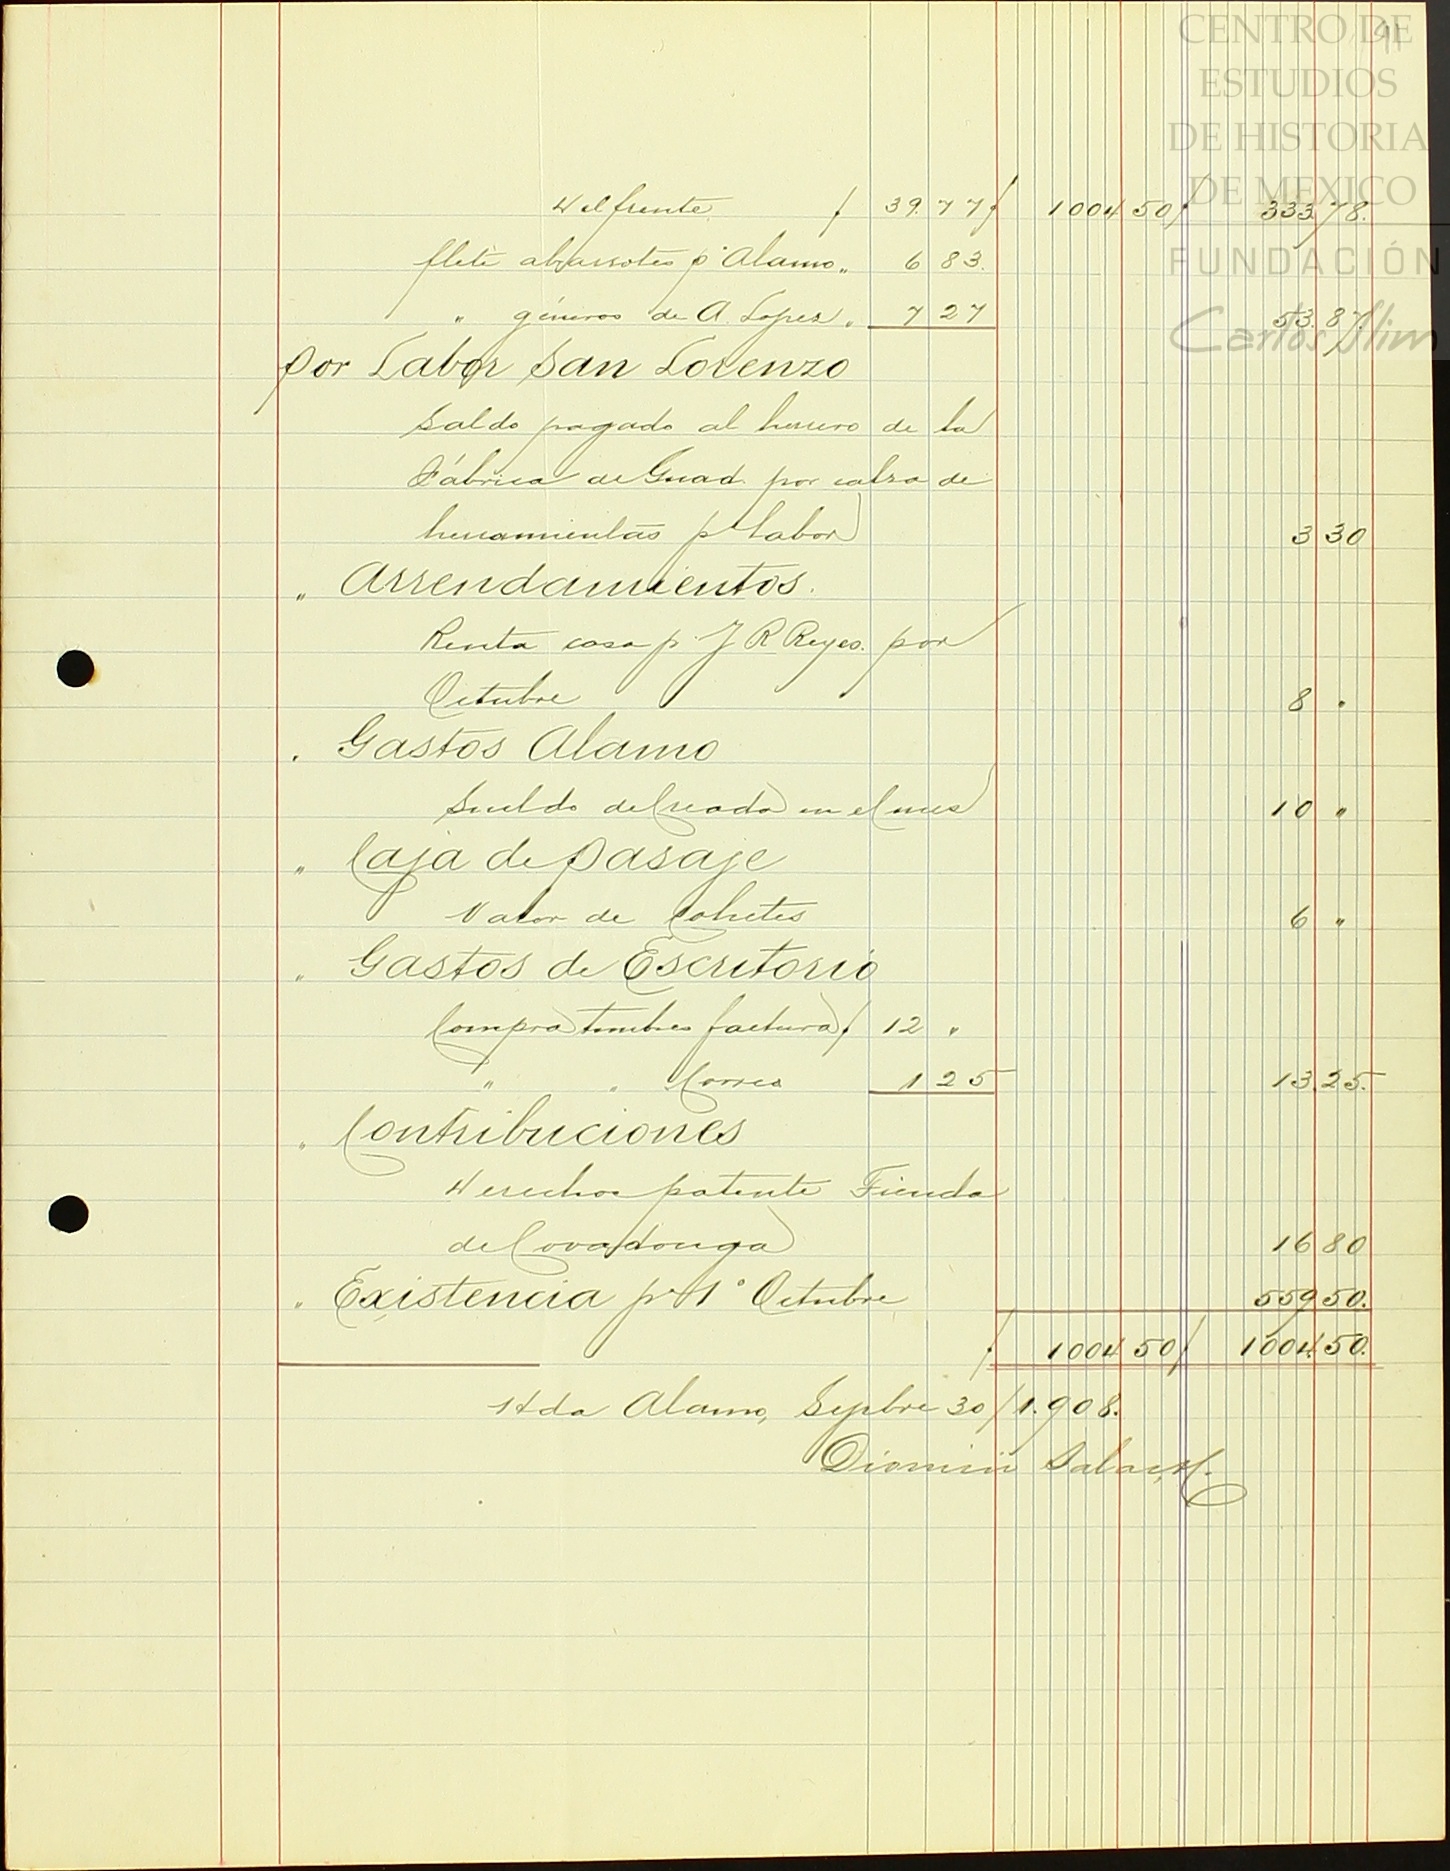 CENTRO DE
ESTUDIOS
DE HISTORIA
DE MEXICO
FUNDACIÓN
Carlos Slim
91
Del frente $ 39.77 $ 1004 50 $ 333.78.
flete abarrotes p. Alamo „ 6 83.
„ géneros de A. Lopez „ 7 27 53.87.
Por Labor San Lorenzo
Saldo pagado al herrero de la
Fábrica de Guad. por calza de
herramientas p. labor 3 30
„ Arrendamientos.
Renta casa p. J R Reyes. por
Octubre 8 „
„ Gastos Alamo
Sueldo del criado en el mes 10 „
„ Caja de Pasaje
Valor de Cohetes 6 „
„ Gastos de Escritorio
Compra timbres factura $ 12 „
„ „ Correo 1 25 13.25.
„ Contribuciones
Derechos patente Tienda
de Covadonga 16 80
„ Existencia p. 1° Octubre 559 50.
$ 1004 50 $ 1004.50.
Hda Alamo, Sepbre 30/1.908.
Salas